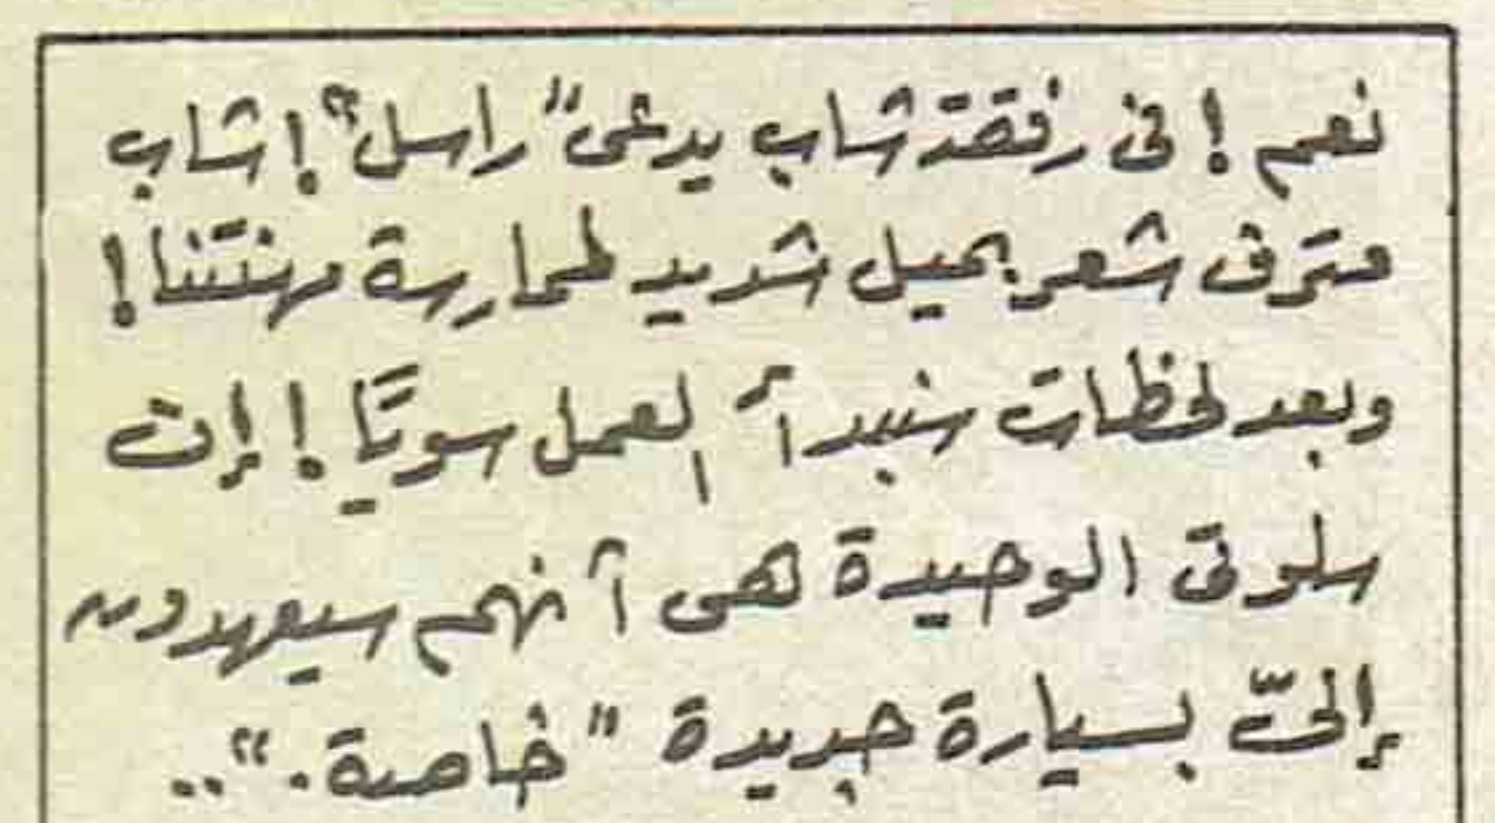 نعم ! فى رفقة شاب يدعى "راسل" ! شاب
مترف شعر بميل شديد لممارسة مهنتنا !
وبعد لحظات سنبدأ العمل سويًا ! إن
سلوتى الوحيدة هى أنهم سيعهدون
إلىّ بسيارة جديدة "خاصة" . ..